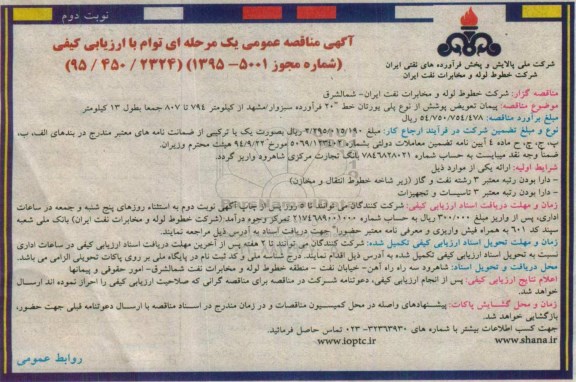 نوبت دوم
شرکت ملی پالایش و پخش فرآورده های نفتی ایران
شرکت خطوط لوله و مخابرات نفت ایران
آگهی مناقصه عمومی یک مرحله ای توام با ارزیابی کیفی
(شماره مجوز ۵۰۰۱- ۱۳۹۵) (۲۳۲۴ / ۴۵۰ / ۹۵)
مناقصه گزار: شرکت خطوط لوله و مخابرات نفت ایران- شمالشرق
موضوع مناقصه: پیمان تعویض پوشش از نوع پلی یورتان خط "۲۰ فرآورده سبزوار/مشهد از کیلومتر ۷۹۴ تا ۸۰۷ جمعا بطول ۱۳ کیلومتر
مبلغ برآورد مناقصه: ۵۴/۷۵۰/۷۵۴/۴۷۸ ریال
نوع و مبلغ تضمین شرکت در فرآیند ارجاع کار: مبلغ ۲/۲۹۵/۰۱۵/۱۹۰ ریال بصورت یک یا ترکیبی از ضمانت نامه های معتبر مندرج در بندهای الف، ب،
پ، ج، چ، ح ماده ۴ آیین نامه تضمین معاملات دولتی بشماره ۱۲۳۴۰۲/ت۵۰۶۹ مورخ ۹۴/۹/۲۲ هیئت محترم وزیران.
ضمناً وجه نقد میبایست به حساب شماره ۷۸۴۶۸۲۸۰۲۱ بانک تجارت مرکزی شاهرود واریز گردد.
شرایط اولیه: ارائه یکی از موارد ذیل
- دارا بودن رتبه معتبر ۳ رشته نفت و گاز (زیر شاخه خطوط انتقال و مخازن)
- دارا بودن رتبه معتبر ۳ تاسیسات و تجهیزات
زمان و مهلت دریافت اسناد ارزیابی کیفی: شرکت کنندگان می توانند تا ۵ روز پس از چاپ آگهی نوبت دوم به استثناء روزهای پنج شنبه و جمعه در ساعات
اداری، پس از واریز مبلغ ۳۰۰/۰۰۰ ریال به حساب شماره ۲۱۷۴۶۸۹۰۰۱۰۰۰ تمرکز وجوه درآمد (شرکت خطوط لوله و مخابرات نفت ایران) بانک ملی شعبه
سپند کد ۶۰۱ به همراه فیش واریزی و معرفی نامه معتبر حضورا" جهت دریافت اسناد به آدرس ذیل مراجعه نمایند.
زمان و مهلت تحویل اسناد ارزیابی کیفی تکمیل شده: شرکت کنندگان می توانند تا ۲ هفته پس از آخرین مهلت دریافت اسناد ارزیابی کیفی در ساعات اداری
نسبت به تحویل اسناد ارزیابی کیفی تکمیل شده به آدرس ذیل اقدام نمایند. درج شناسه ملی و کد ثبت نام در پایگاه ملی بر روی پاکات تحویلی الزامی می باشد.
محل دریافت و تحویل اسناد: شاهرود سه راه راه آهن- خیابان نفت - منطقه خطوط لوله و مخابرات نفت شمالشرق- امور حقوقی و پیمانها
اعلام نتایج ارزیابی کیفی: پس از انجام ارزیابی کیفی، دعوتنامه شرکت در مناقصه برای مناقصه گرانی که صلاحیت ارزیابی کیفی را احراز نموده اند ارسال
خواهد شد.
زمان و محل گشایش پاکات: پیشنهادهای واصله در محل کمیسیون مناقصات و در زمان مندرج در اسناد مناقصه با ارسال دعوتنامه قبلی جهت حضور،
بازگشایی خواهد شد.
جهت کسب اطلاعات بیشتر با شماره های ۳۲۳۶۳۹۳۰- ۰۲۳ تماس حاصل فرمائید.
www.shana.ir www.ioptc.ir
روابط عمومی